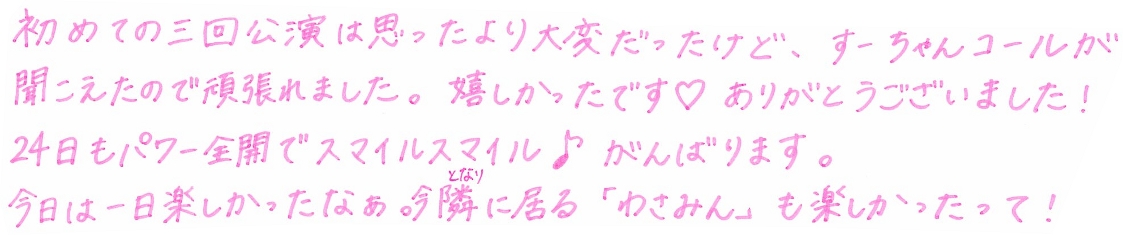 初めての三回公演は思ったより大変だったけど、すーちゃんコールが
聞こえたので頑張れました。嬉しかったです♡ ありがとうございました!
24日もパワー全開でスマイルスマイル♪ がんばります。
今日は一日楽しかったなぁ。今隣(となり)に居る「わさみん」も楽しかったって!